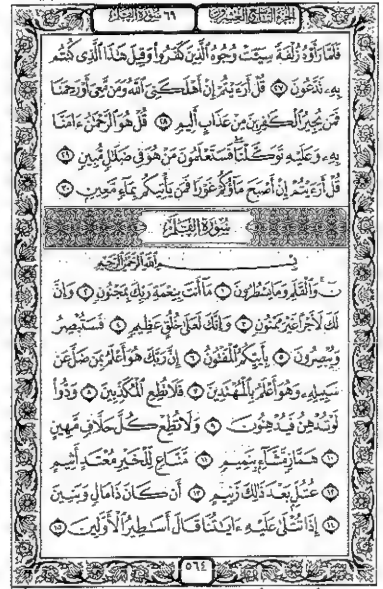 الجزء التاسع والعشرون
سورة القلم
فَلَمَّا رَأَوْهُ زُلْفَةً سِيٓـَٔتْ وُجُوهُ ٱلَّذِينَ كَفَرُوا۟ وَقِيلَ هَٰذَا ٱلَّذِى كُنتُم
بِهِۦ تَدَّعُونَ ٢٧ قُلْ أَرَءَيْتُمْ إِنْ أَهْلَكَنِىَ ٱللَّهُ وَمَن مَّعِىَ أَوْ رَحِمَنَا
فَمَن يُجِيرُ ٱلْكَٰفِرِينَ مِنْ عَذَابٍ أَلِيمٍ ٢٨ قُلْ هُوَ ٱلرَّحْمَٰنُ ءَامَنَّا
بِهِۦ وَعَلَيْهِ تَوَكَّلْنَا فَسَتَعْلَمُونَ مَنْ هُوَ فِى ضَلَٰلٍ مُّبِينٍ ٢٩
قُلْ أَرَءَيْتُمْ إِنْ أَصْبَحَ مَآؤُكُمْ غَوْرًا فَمَن يَأْتِيكُم بِمَآءٍ مَّعِينٍۭ ٣٠
سُورَةُ القَلَمِ
بِسْمِ ٱللَّهِ ٱلرَّحْمَٰنِ ٱلرَّحِيمِ
نٓ وَٱلْقَلَمِ وَمَا يَسْطُرُونَ ١ مَآ أَنتَ بِنِعْمَةِ رَبِّكَ بِمَجْنُونٍ ٢ وَإِنَّ
لَكَ لَأَجْرًا غَيْرَ مَمْنُونٍ ٣ وَإِنَّكَ لَعَلَىٰ خُلُقٍ عَظِيمٍ ٤ فَسَتُبْصِرُ
وَيُبْصِرُونَ ٥ بِأَييِّكُمُ ٱلْمَفْتُونُ ٦ إِنَّ رَبَّكَ هُوَ أَعْلَمُ بِمَن ضَلَّ عَن
سَبِيلِهِۦ وَهُوَ أَعْلَمُ بِٱلْمُهْتَدِينَ ٧ فَلَا تُطِعِ ٱلْمُكَذِّبِينَ ٨ وَدُّوا۟
لَوْ تُدْهِنُ فَيُدْهِنُونَ ٩ وَلَا تُطِعْ كُلَّ حَلَّافٍ مَّهِينٍ
١٠ هَمَّازٍ مَّشَّآءٍۭ بِنَمِيمٍ ١١ مَّنَّاعٍ لِّلْخَيْرِ مُعْتَدٍ أَثِيمٍ
١٢ عُتُلٍّۭ بَعْدَ ذَٰلِكَ زَنِيمٍ ١٣ أَن كَانَ ذَا مَالٍ وَبَنِينَ
١٤ إِذَا تُتْلَىٰ عَلَيْهِ ءَايَٰتُنَا قَالَ أَسَٰطِيرُ ٱلْأَوَّلِينَ ١٥
٥٦٤